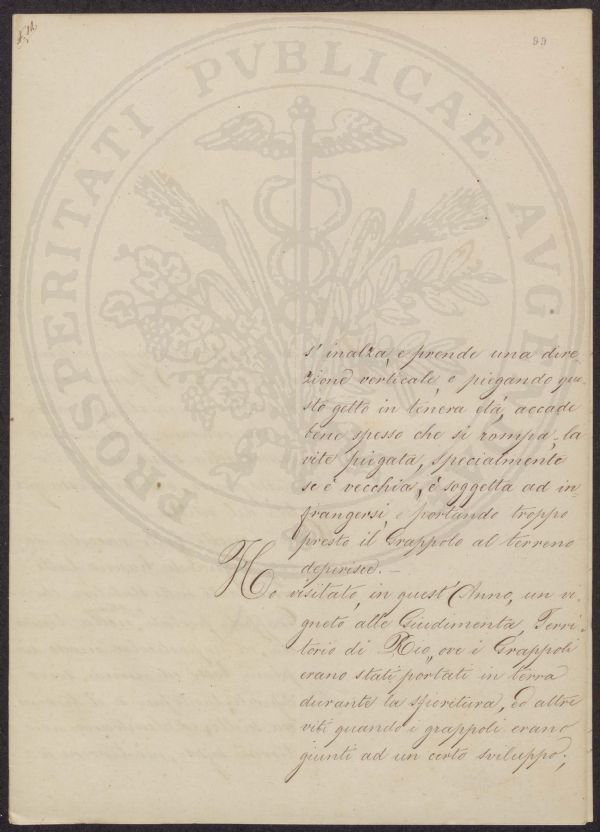 99
PROSPERITATI PVBLICAE AVGENDAE
s' inalza, e prende una dire-
zione verticale, e piegando que-
sto getto in tenera età, accade
bene spesso che si rompa, la
vite piegata, specialmente
se è vecchia, è soggetta ad in-
frangersi, e portando troppo
presto il Grappolo al terreno
deperisce. —
Ho visitato in quest' Anno, un vi-
gneto alle Giudimenta, Terri-
torio di Rio, ove i Grappoli
erano stati portati in terra
durante la sfioritura, ed altre
viti quando i grappoli erano
giunti ad un certo sviluppo;